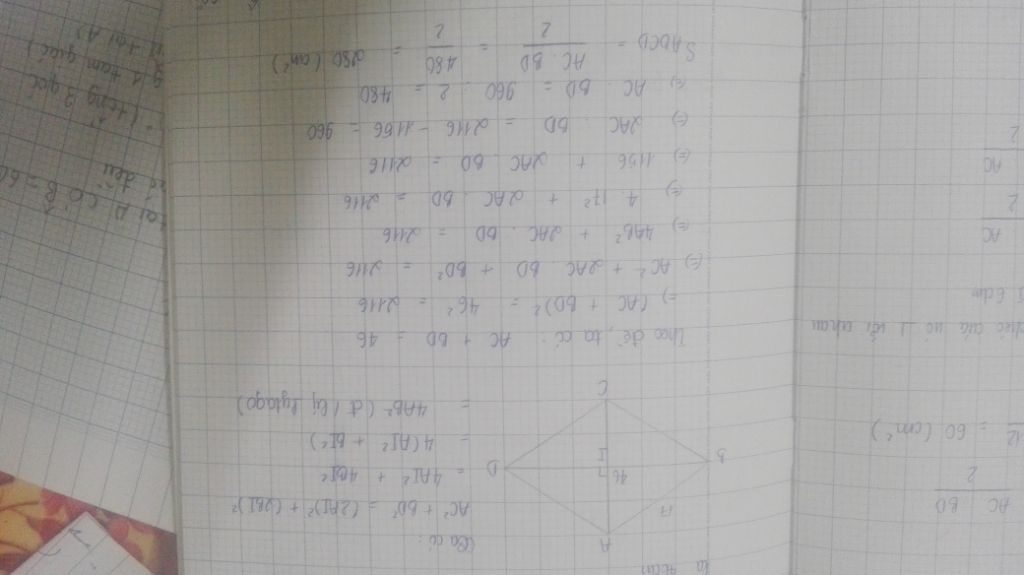 Ta có:
AC² + BD² = (2AI)² + (2BI)²
= 4AI² + 4BI²
= 4(AI² + BI²)
= 4AB² (đ/lý Pytago)
A
17
B
46
I
D
C
Theo đề, ta có: AC + BD = 46
=> (AC + BD)² = 46² = 2116
(=) AC² + 2AC . BD + BD² = 2116
(=) 4AB² + 2AC . BD = 2116
(=) 4 . 17² + 2AC . BD = 2116
(=) 1156 + 2AC . BD = 2116
(=) 2AC . BD = 2116 - 1156 = 960
(=) AC . BD = 960 : 2 = 480
SABCD = AC . BD / 2 = 480 / 2 = 280 (cm²)
AC BD
2
= 60 (cm²)
với nhau
AC
2
AC
2
có B̂ = 60
đều
(trong 3 góc
tam giác)
tại A)